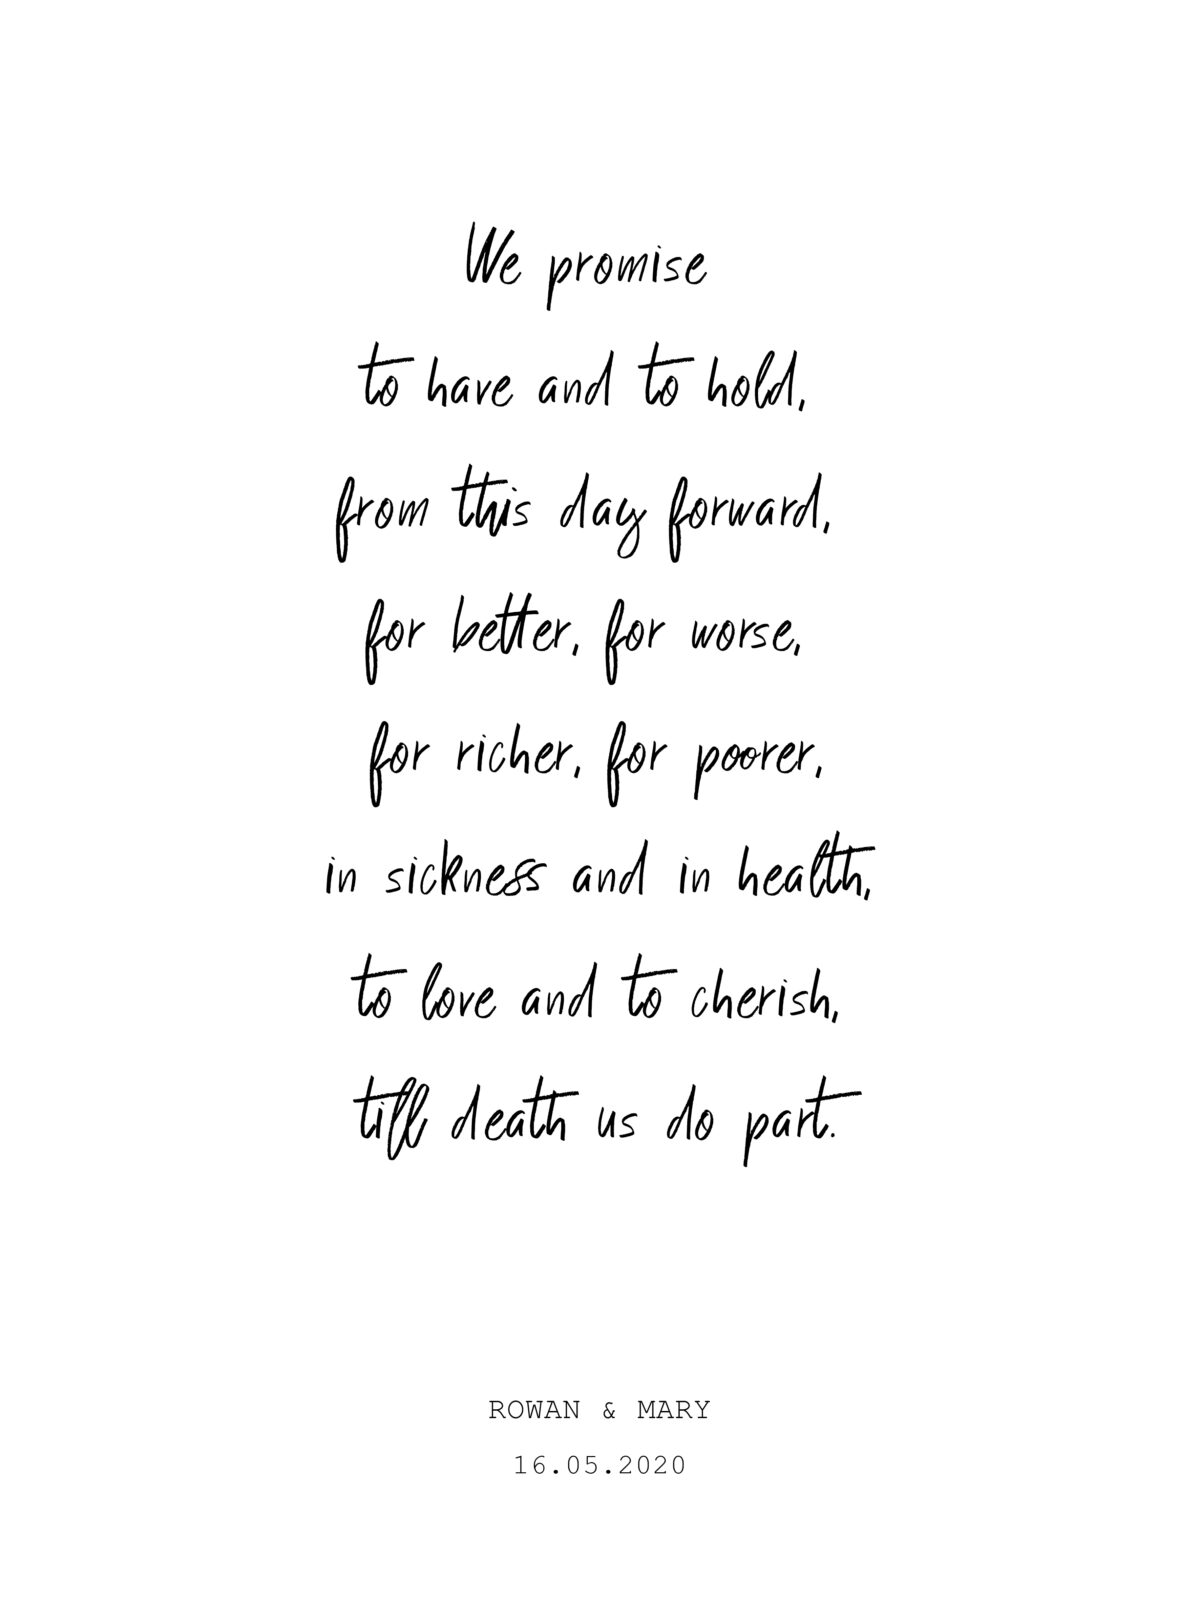 We promise
to have and to hold,
from this day forward,
for better, for worse,
for richer, for poorer,
in sickness and in health,
to love and to cherish,
till death us do part.
ROWAN & MARY
16.05.2020